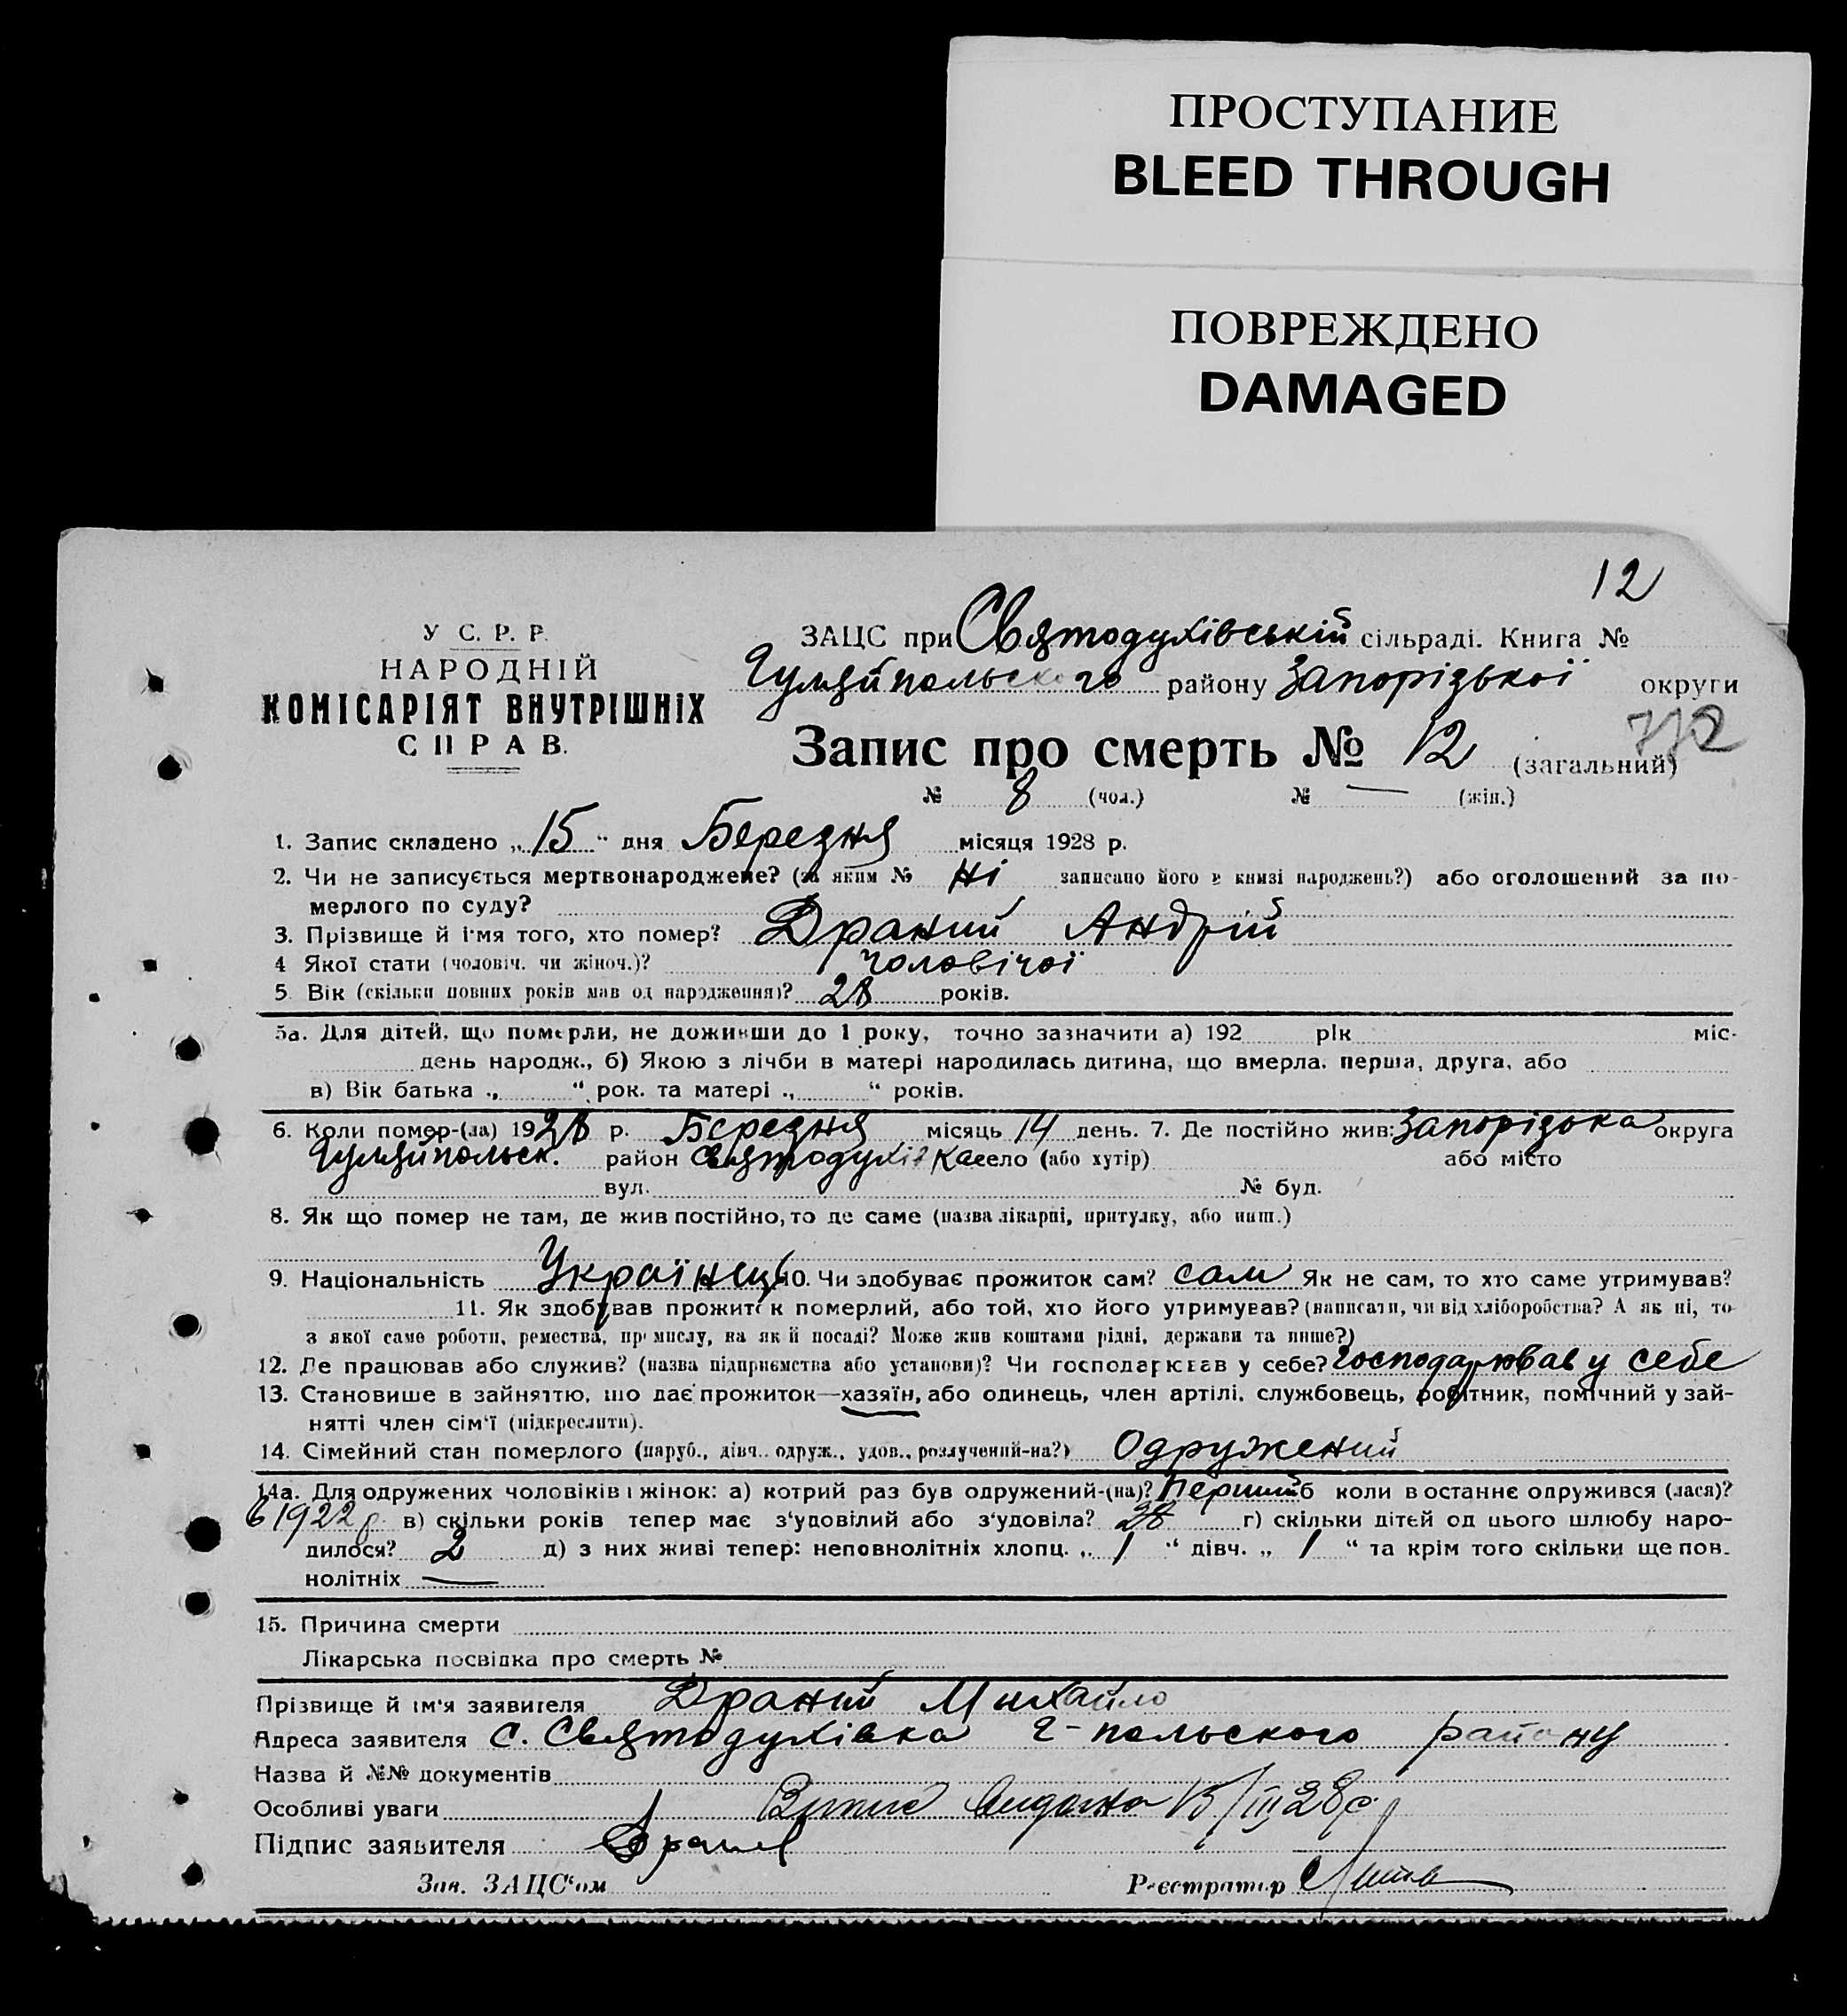 ПРОСТУПАНИЕ
BLEED THROUGH
ПОВРЕЖДЕНО
DAMAGED
12
У С. Р. Р.
НАРОДНІЙ
КОМІСАРІЯТ ВНУТРІШНІХ
СПРАВ.
ЗАЦС при Святодухівській сільраді. Книга №
Гуляйпольского району Запорізької округи
Запис про смерть № 12 (загальний)
№ 8 (чол.) № — (жін.)
1. Запис складено „15“ дня Березня місяця 1928 р.
2. Чи не записується мертвонароджене? (за яким № Ні записано його в книзі народжень?) або оголошений за по-
мерлого по суду?
3. Прізвище й ім'я того, хто помер? Драний Андрій
4 Якої стати (чоловіч. чи жіноч.)? чоловічої
5. Вік (скільки повних років мав од народження)? 28 років.
5а. Для дітей, що померли, не доживши до 1 року, точно зазначити а) 192 рік міс-
день народж., б) Якою з лічби в матері народилась дитина, що вмерла. перша, друга, або
в) Вік батька „ “ рок. та матері „ “ років.
6. Коли помер-(ла) 1928 р. Березня місяць 14 день. 7. Де постійно жив: Запорізька округа
Гуляйпольск. район Святодухівка село (або хутір) або місто
вул. № буд.
8. Як що помер не там, де жив постійно, то де саме (назва лікарні, притулку, або инш.)
9. Національність Українець 10. Чи здобуває прожиток сам? сам Як не сам, то хто саме утримував?
11. Як здобував прожиток померлий, або той, хто його утримував? (написати, чи від хліборобства? А як ні, то
з якої саме роботи, ремества, промислу, на якій посаді? Може жив коштами рідні, держави та инше?)
12. Де працював або служив? (назва підприємства або установи)? Чи господарював у себе? Господарював у себе
13. Становище в зайняттю, що дає прожиток—хазяїн, або одинець, член артілі, службовець, робітник, помічний у зай-
нятті член сім'ї (підкреслити).
14. Сімейний стан померлого (паруб., дівч., одруж., удов., розлучений-на?) Одружений
14а. Для одружених чоловіків і жінок: а) котрий раз був одружений-(на)? Перший б коли востаннє одружився (лася)?
в 1922 р. в) скільки років тепер має з'удовілий або з'удовіла? 28 г) скільки дітей од цього шлюбу наро-
дилося? 2 д) з них живі тепер: неповнолітніх хлопц. „ 1 “ дівч. „ 1 “ та крім того скільки ще пов.
нолітніх —
15. Причина смерти
Лікарська посвідка про смерть №
Прізвище й ім'я заявителя Драний Михайло
Адреса заявителя с. Святодухівка Г-польского району
Назва й №№ документів
Особливі уваги Випис видана 15/III 28р.
Підпис заявителя
Зав. ЗАЦС'ом Реєстратор